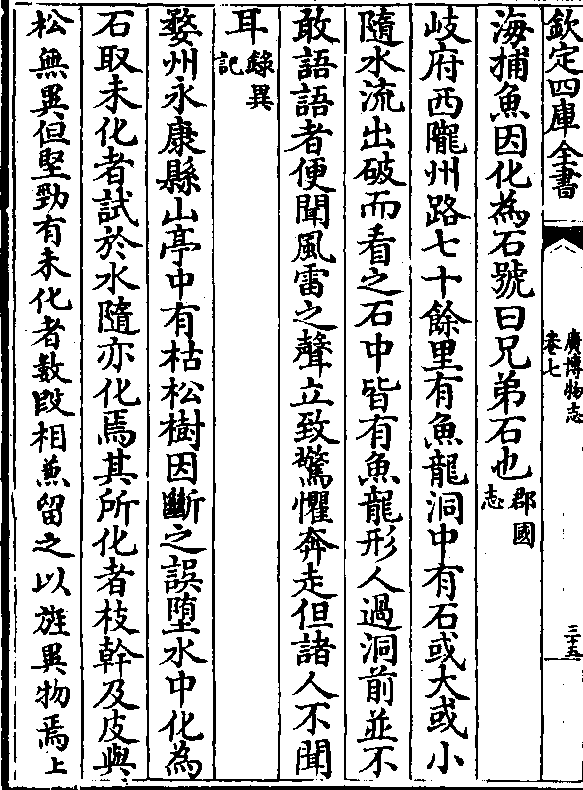 欽定四庫全書
廣博物志
卷七
三十五
海捕魚因化為石號曰兄弟石也郡國志
岐府西隴州路七十餘里有魚龍洞中有石或大或小
隨水流出破而看之石中皆有魚龍形人過洞前並不
敢語語者便聞風雷之聲立致驚懼奔走但諸人不聞
耳錄異記
婺州永康縣山亭中有枯松樹因斷之誤墮水中化為
石取未化者試於水隨亦化焉其所化者枝幹及皮與
松無異但堅勁有未化者數段相兼留之以旌異物焉上